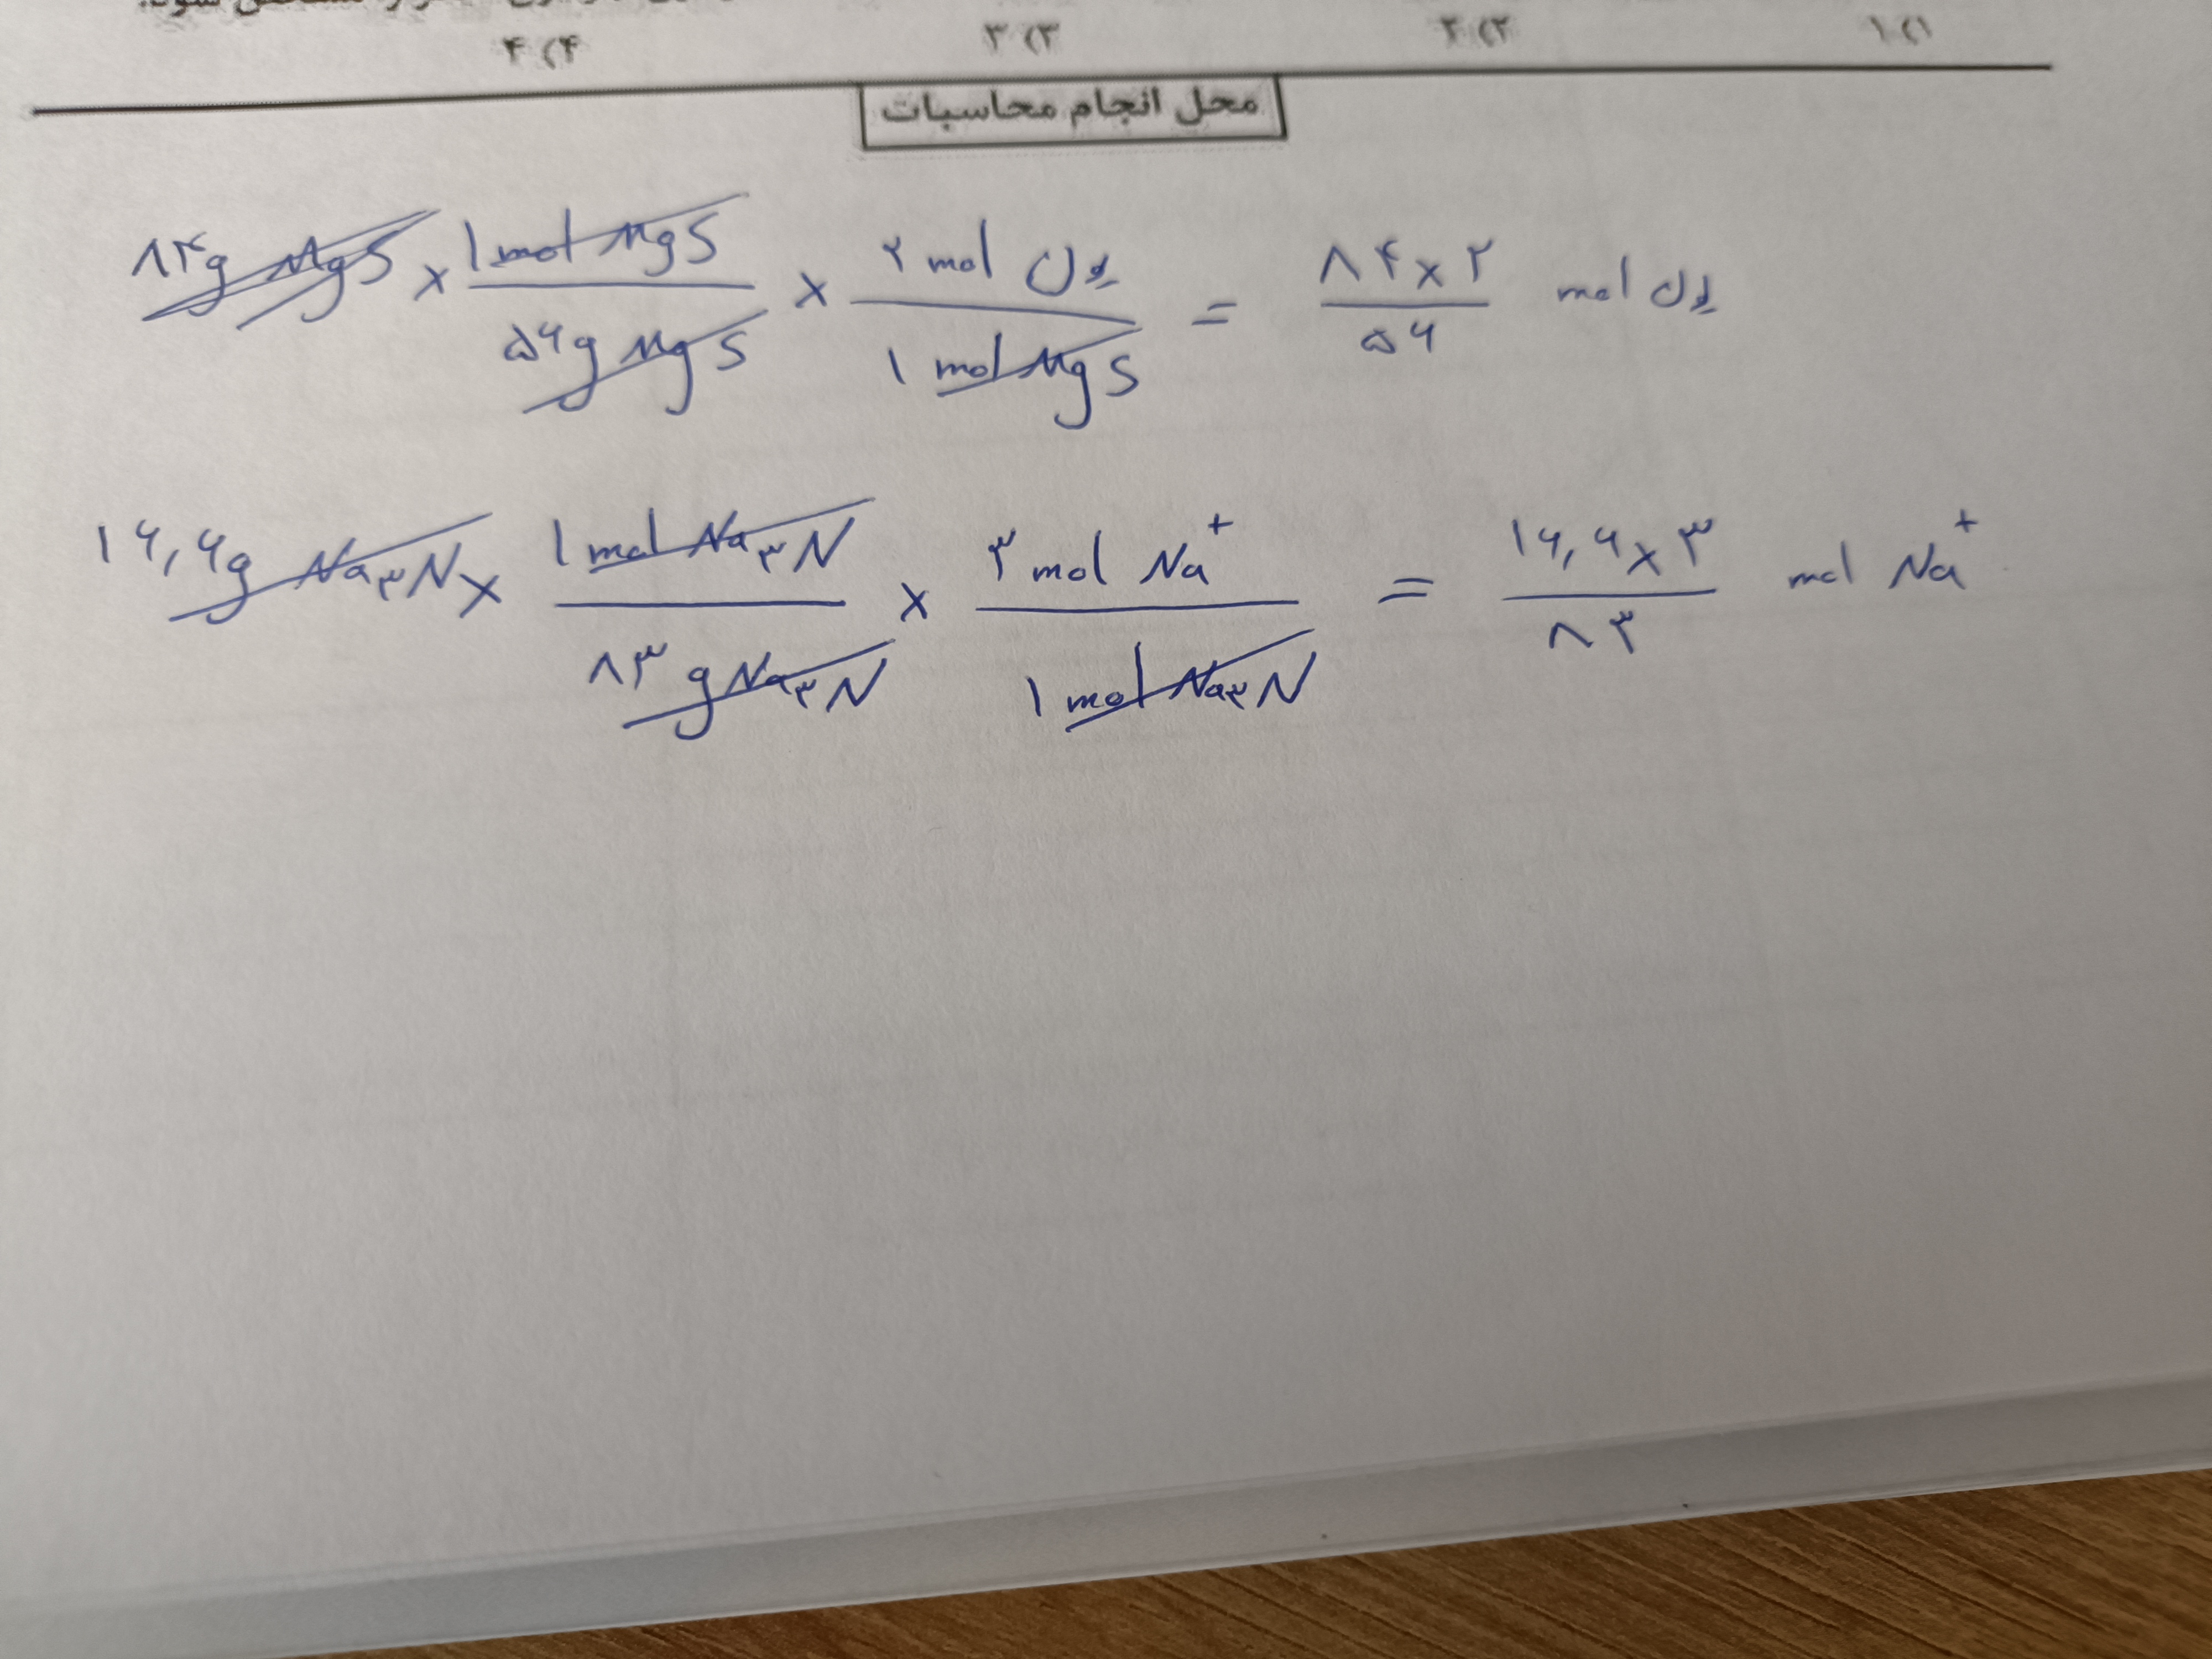 ۱) ۱ ۲) ۲ ۳) ۳ ۴) ۴
محل انجام محاسبات
۸۴g MgS × ۱ mol MgS / ۵۶g MgS × ۲ mol یون / ۱ mol MgS = ۸۴×۲ / ۵۶ mol یون
۱۶,۶g Na۳N × ۱ mol Na۳N / ۸۳ g Na۳N × ۳ mol Na⁺ / ۱ mol Na۳N = ۱۶,۶×۳ / ۸۳ mol Na⁺